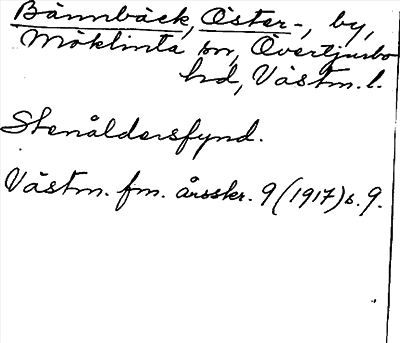 Bännbäck, Öster-, by,
Möklinta sn, Övertjurbo
hd, Västm. l.
Stenåldersfynd.
Västm. fm. årsskr. 9 (1917) s. 9.